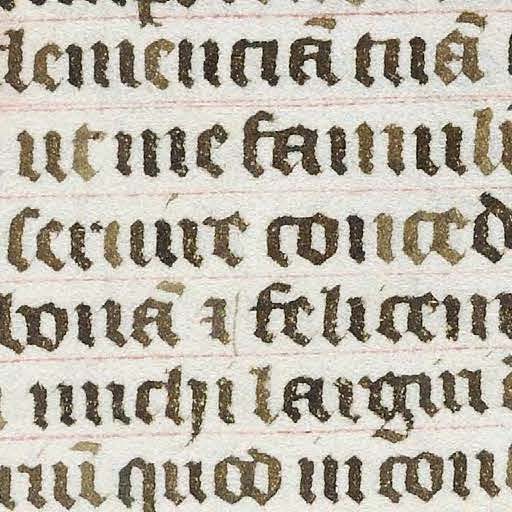 clemenciā tuā
ut me famuli
serunt conced
bonā ⁊ felicem
michi largiri
quod in con